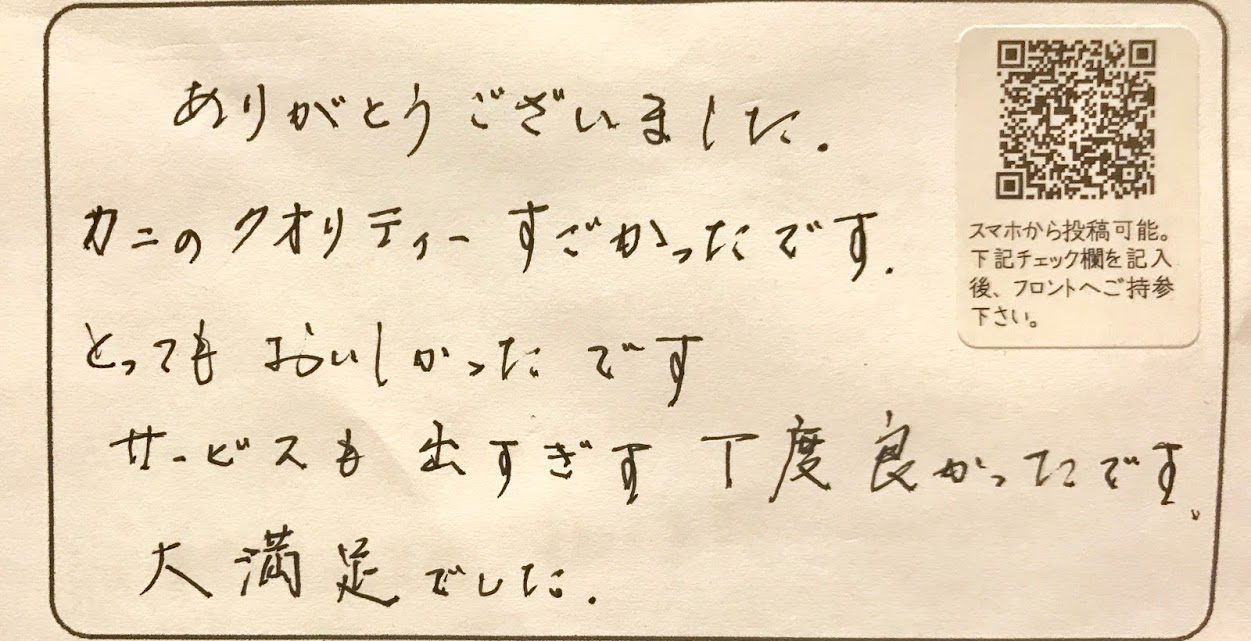 ありがとうございました.
カニのクオリティーすごかったです.
とっても おいしかった です
サービスも 出すぎす 丁度良かったです、
大満足でした.
スマホから投稿可能。
下記チェック欄を記入
後、フロントへご持参
下さい。